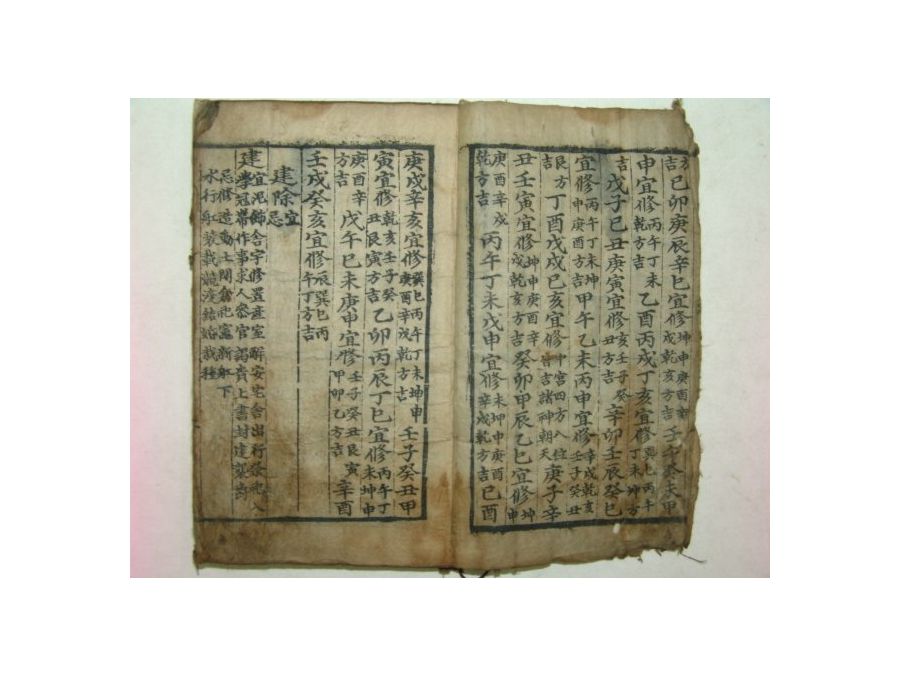 方吉己卯庚辰辛巳宜修坤申庚酉辛戌乾亥方吉壬午癸未甲
申宜修丙午丁未乾方吉乙酉丙戌丁亥宜修巽巳丙午丁未坤方
吉戊子己丑庚寅宜修亥壬子癸丑方吉辛卯壬辰癸巳
宜修丙午丁未坤申庚酉方吉甲午乙未丙申宜修辛戌乾亥壬子癸丑
艮方吉丁酉戊戌己亥宜修中宮四方入位皆吉諸神朝天庚子辛
丑壬寅宜修坤申庚酉辛戌乾亥方吉癸卯甲辰乙巳宜修坤申
庚酉辛戌乾方吉丙午丁未戊申宜修未坤申庚酉辛戌乾方吉己酉
庚戌辛亥宜修巽巳丙午丁未坤申庚酉辛戌乾方吉壬子癸丑甲
寅宜修乾亥壬子癸丑艮寅方吉乙卯丙辰丁巳宜修丙午丁未坤申
庚酉辛方吉戊午己未庚申宜修壬子癸丑艮寅甲卯乙方吉辛酉
壬戌癸亥宜修辰巽巳丙午丁方吉
建除宜忌
建宜泥飾舍宇修置産室解安宅舍出行祭祀入學冠帶作事求人參官謁貴上書封建製
忌修造動土開倉祀竈新船下水行船裝載競渡結婚栽種